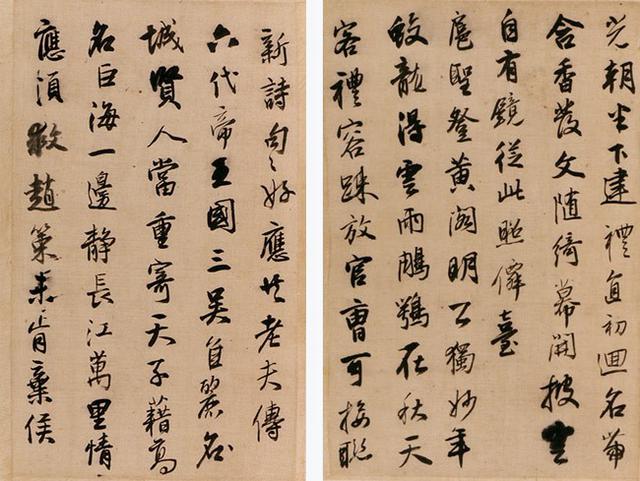 朝半下建禮直初迴名帶
含香發文隨綺幕開披雲
自有鏡從此照僊臺
扈聖登黃閣明公獨妙年
蛟龍得雲雨鵰鶚在秋天
客禮容疎放官曹可接聯
新詩句〻好應老夫傳
六代帝王國三吳自麗名
城賢人當重寄天子藉高
名巨海一邊靜長江萬里情
應須救趙策未肯棄侯